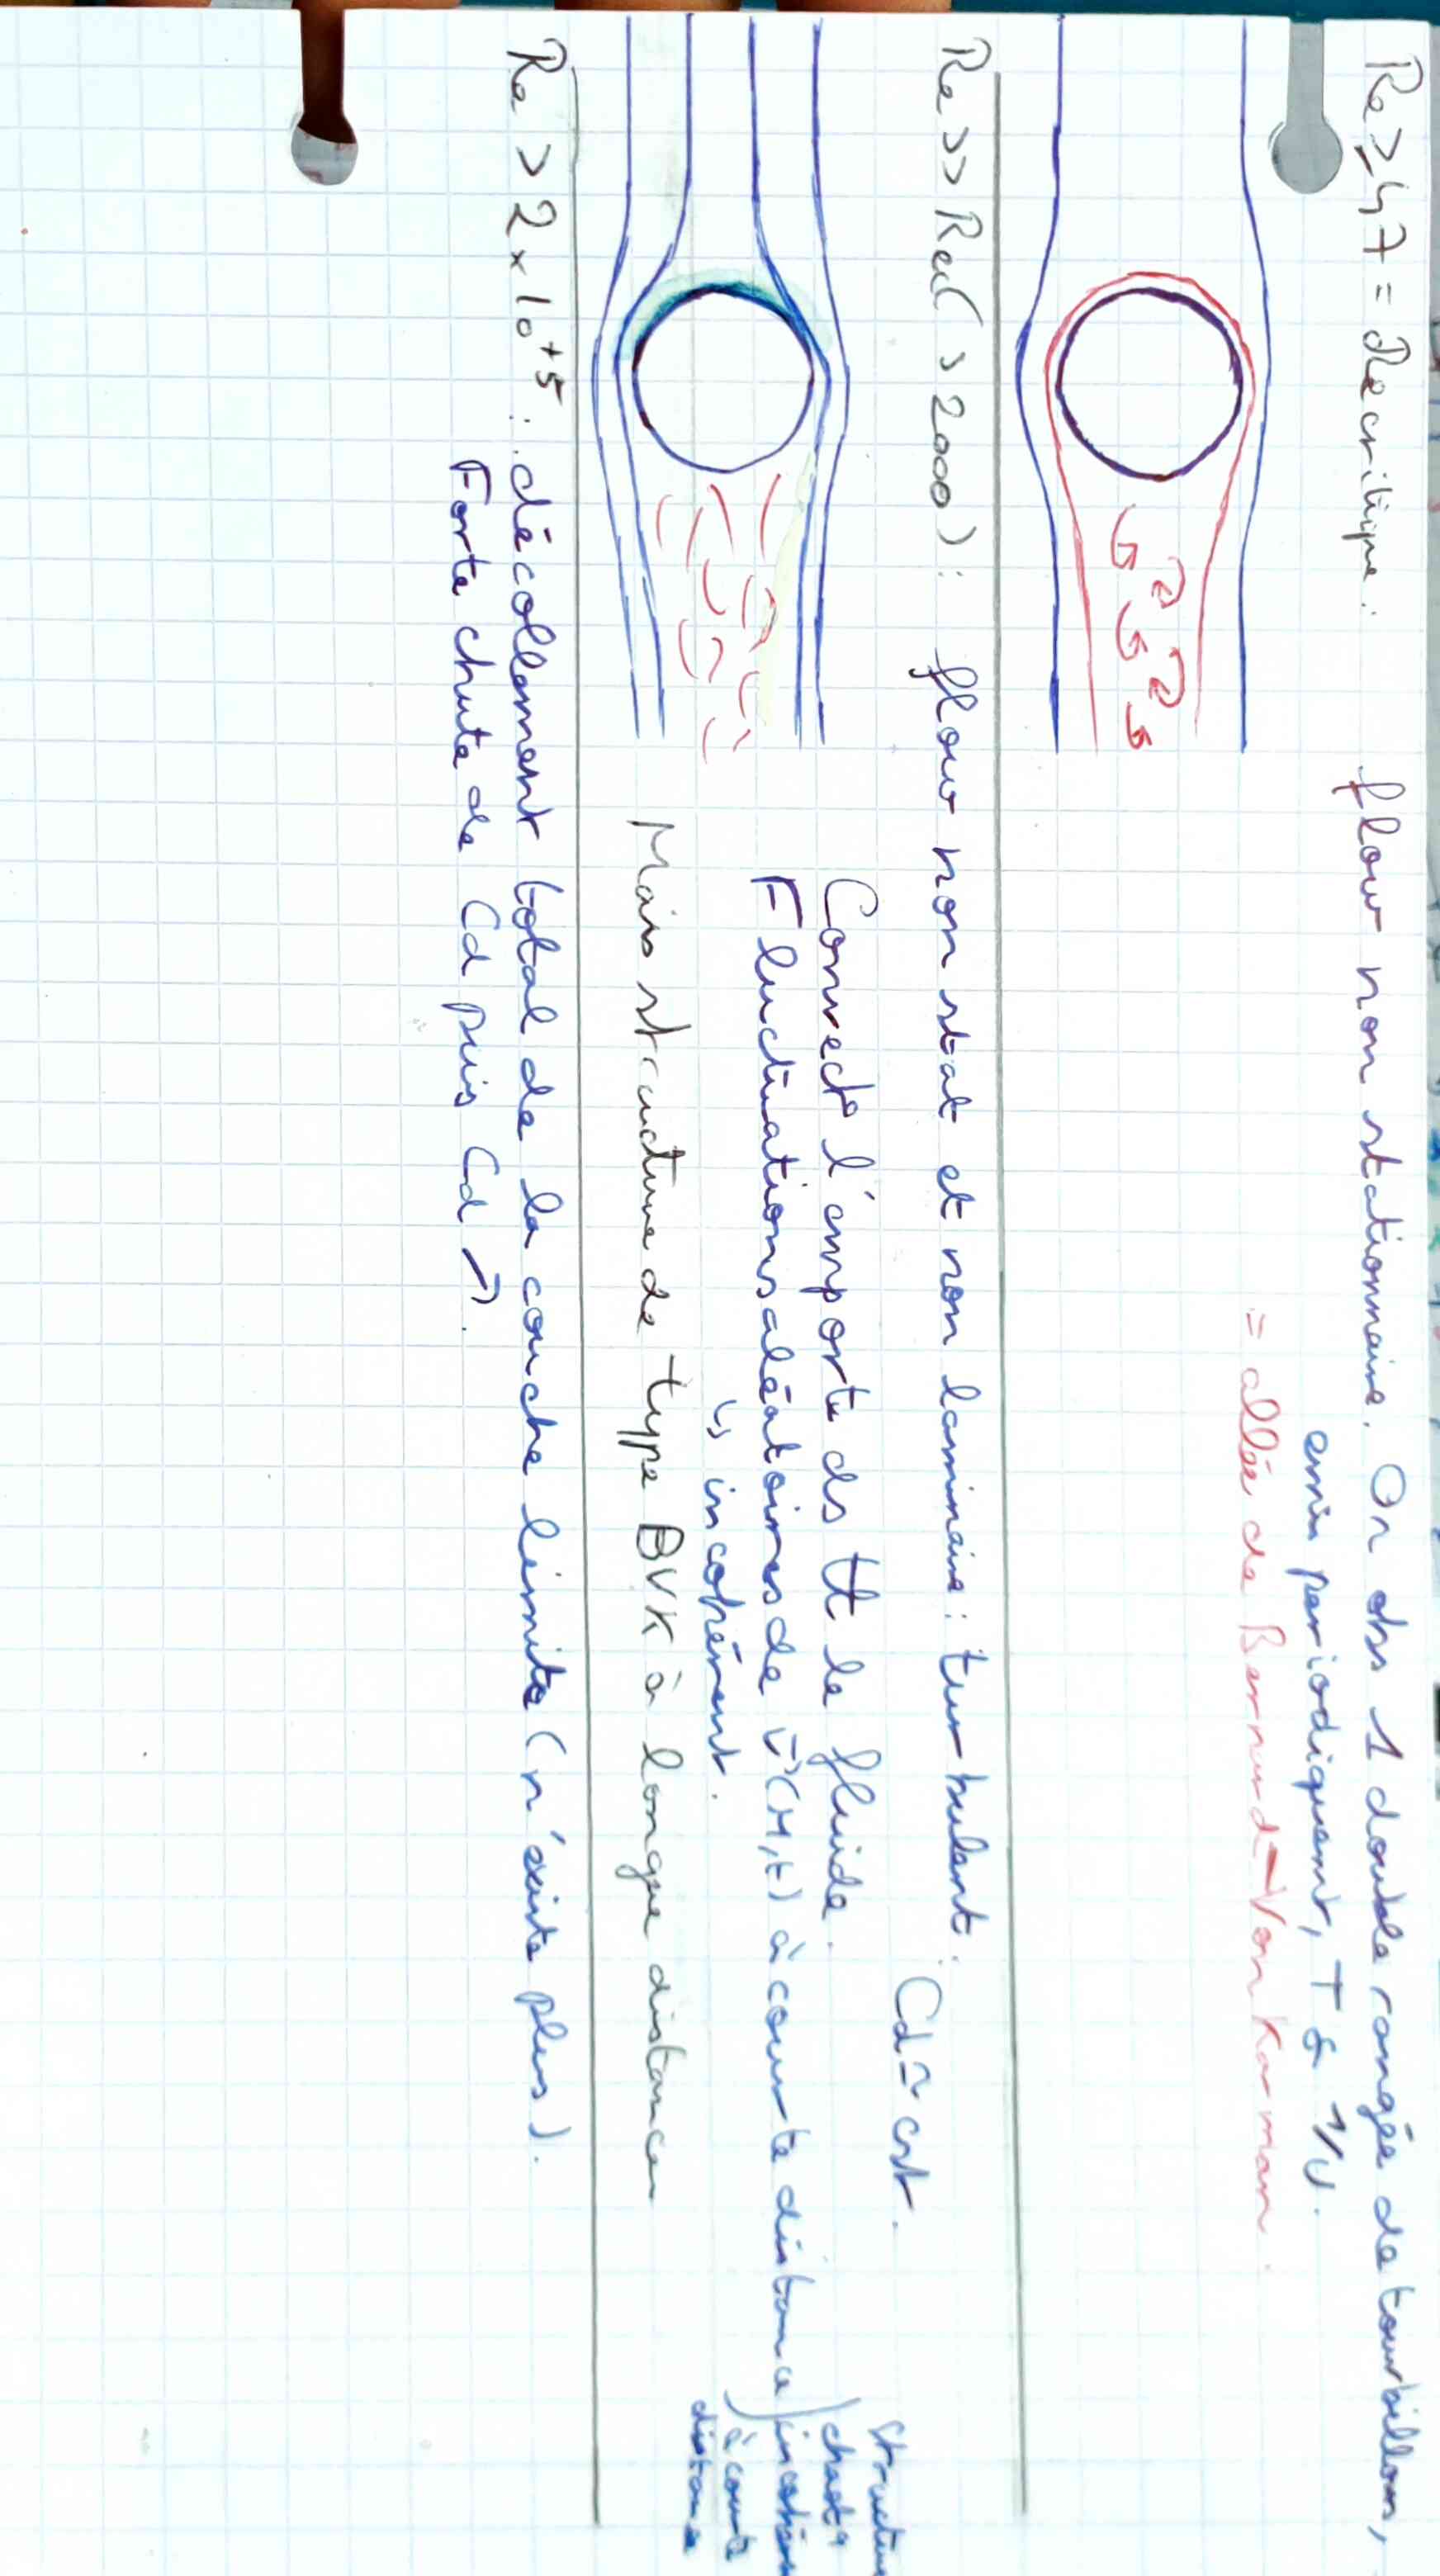 Re ≥ 47 = Re critique : flow non stationnaire. On obs 1 double rangée de tourbillons,
émis périodiquement, T & 1/U.
= allée de Bernard-Von Karman.
Re >> Rec (> 2000) : flow non stat et non laminaire : turbulent. Cd ≃ cst.
Convect° l'emporte ds tt le fluide.
Fluctuations aléatoires de v(M,t) à courte distance
↳ incohérent.
structure
chaot
incohéren
à courte
distance
Mais structure de type BVK à longue distance
Re > 2 × 10⁺⁵ : décollement total de la couche limite (n'existe plus).
Forte chute de Cd puis Cd ↗.